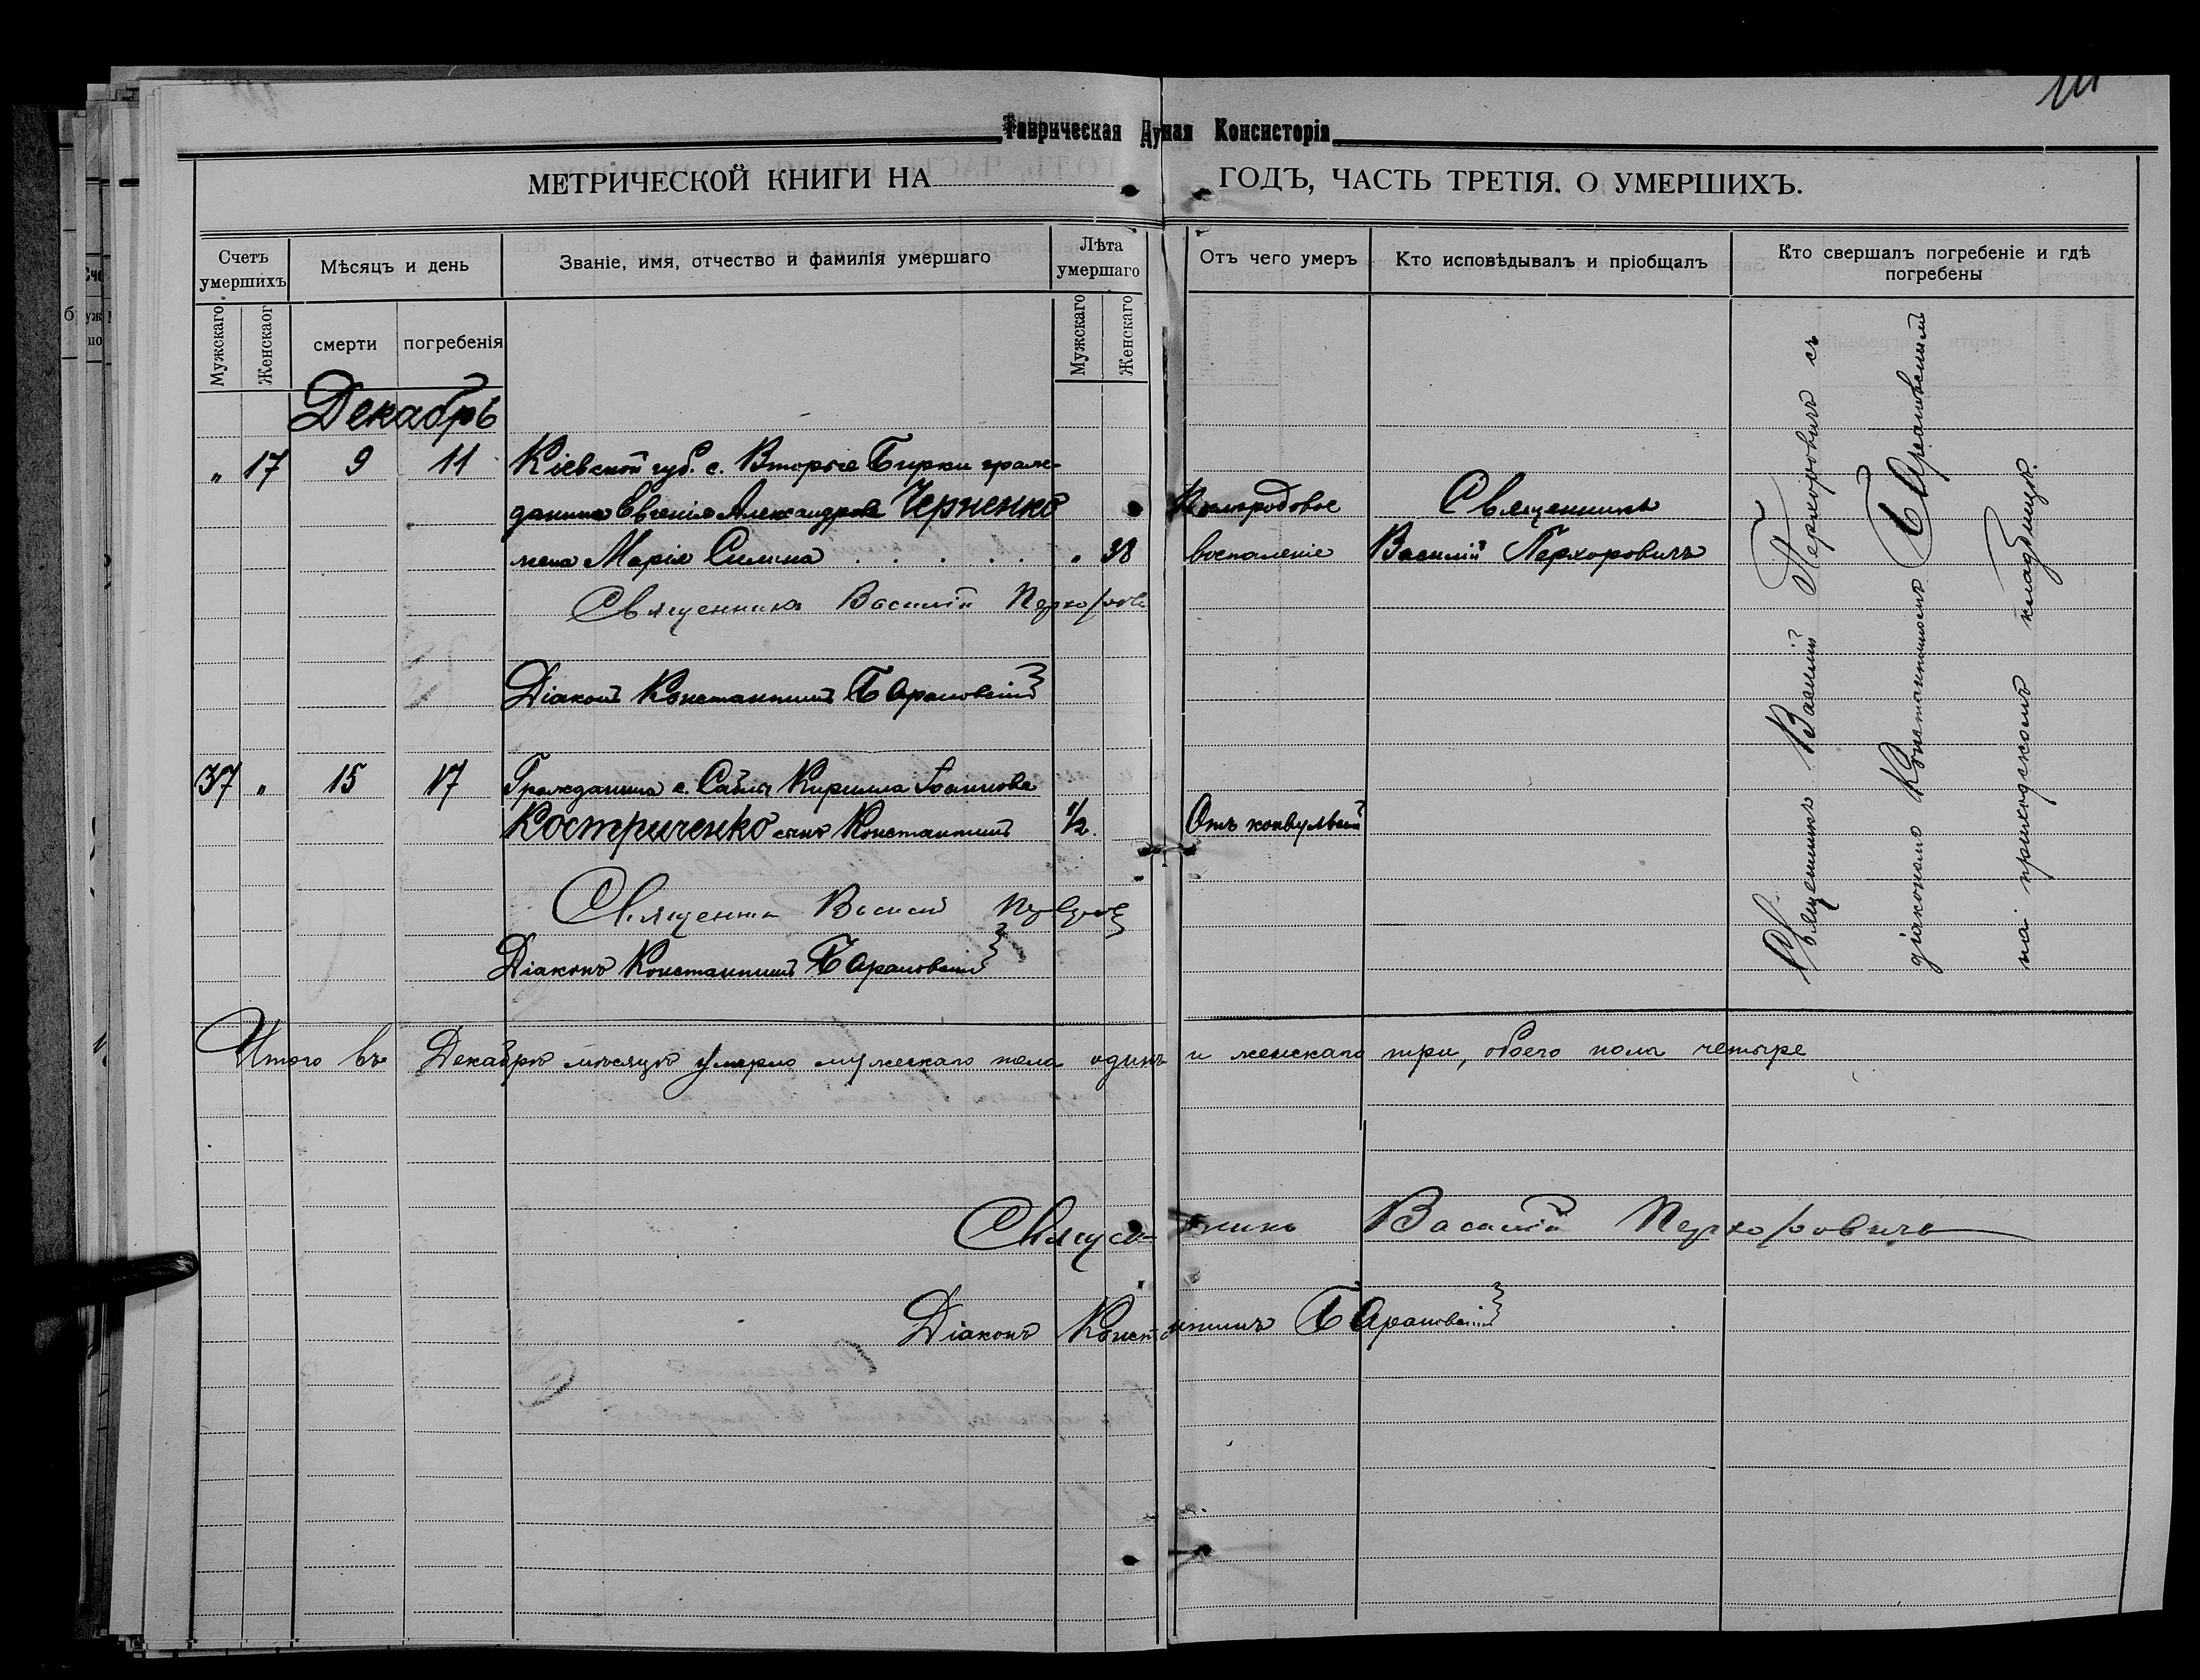 Таврическая Духная Консисторія
МЕТРИЧЕСКОЙ КНИГИ НА ГОДЪ, ЧАСТЬ ТРЕТІЯ. О УМЕРШИХЪ.
Счетъ умершихъ
Мѣсяцъ и день
Званіе, имя, отчество и фамилія умершаго
Лѣта умершаго
Отъ чего умеръ
Кто исповѣдывалъ и пріобщалъ
Кто свершалъ погребеніе и гдѣ погребены
Мужскаго
Женскаог
смерти
погребенія
Мужскаго
Женскаго
Декабрь
" 17 9 11 Кіевской губ. с. Вторые Бирки граж-
данина Евгенія Александрова Черненко Священникъ
жена Марія Силина . . . . . " 38 воспаленіе Василій Перхоровичъ
Священникъ Василій
Діаконъ Константинъ Барановскій
37 " 15 17 Гражданина с. Саблы Кирилла Іоаннова
Костриченко сынъ Константинъ 1/2. Отъ конвульсій
Василій
Діаконъ Константинъ Барановскій
Священникъ Василій Перхоровичъ съ
діакономъ Константиномъ Барановскимъ
на приходскомъ кладбищѣ.
Итого въ Декабрѣ мѣсяцѣ умерло мужескаго пола одинъ и женскаго три, обоего пола четыре
Священникъ Василій Перхоровичъ
Діаконъ Константинъ Барановскій